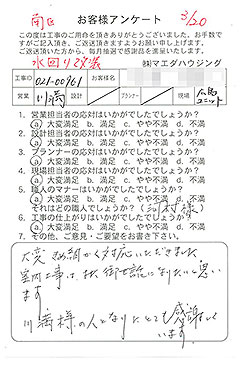 南区
お客様アンケート
3/20
この度は工事のご用命を頂きありがとうございました。お手数で
すがご記入頂き、ご返送頂きますようお願い申し上げます。
ご返送頂いた方から、毎月抽選で感謝品を進呈いたします。
水回り改装
㈱マエダハウジング
工事NO 021-00961 お客様名
営業 川満 設計 プランナー 現場 広島ユニット
1. 営業担当者の応対はいかがでしたでしょうか?
a. 大変満足 b. 満足 c. やや不満 d. 不満
2. 設計担当者の応対はいかがでしたでしょうか?
a. 大変満足 b. 満足 c. やや不満 d. 不満
3. プランナーの応対はいかがでしたでしょうか?
a. 大変満足 b. 満足 c. やや不満 d. 不満
4. 現場担当者の応対はいかがでしたでしょうか?
a. 大変満足 b. 満足 c. やや不満 d. 不満
5. 職人のマナーはいかがでしたでしょうか?
a. 大変満足 b. 満足 c. やや不満 d. 不満
それはどの職人でしょうか?( 河村様 )
6. 工事の仕上がりはいかがでしたでしょうか?
a. 大変満足 b. 満足 c. やや不満 d. 不満
7. その他、ご意見・ご要望をお書き下さい。
大変 対応いただきました
室内工事は、又、御世話になりたいと思い
ます
川満様の人となりにとても感謝して
います。